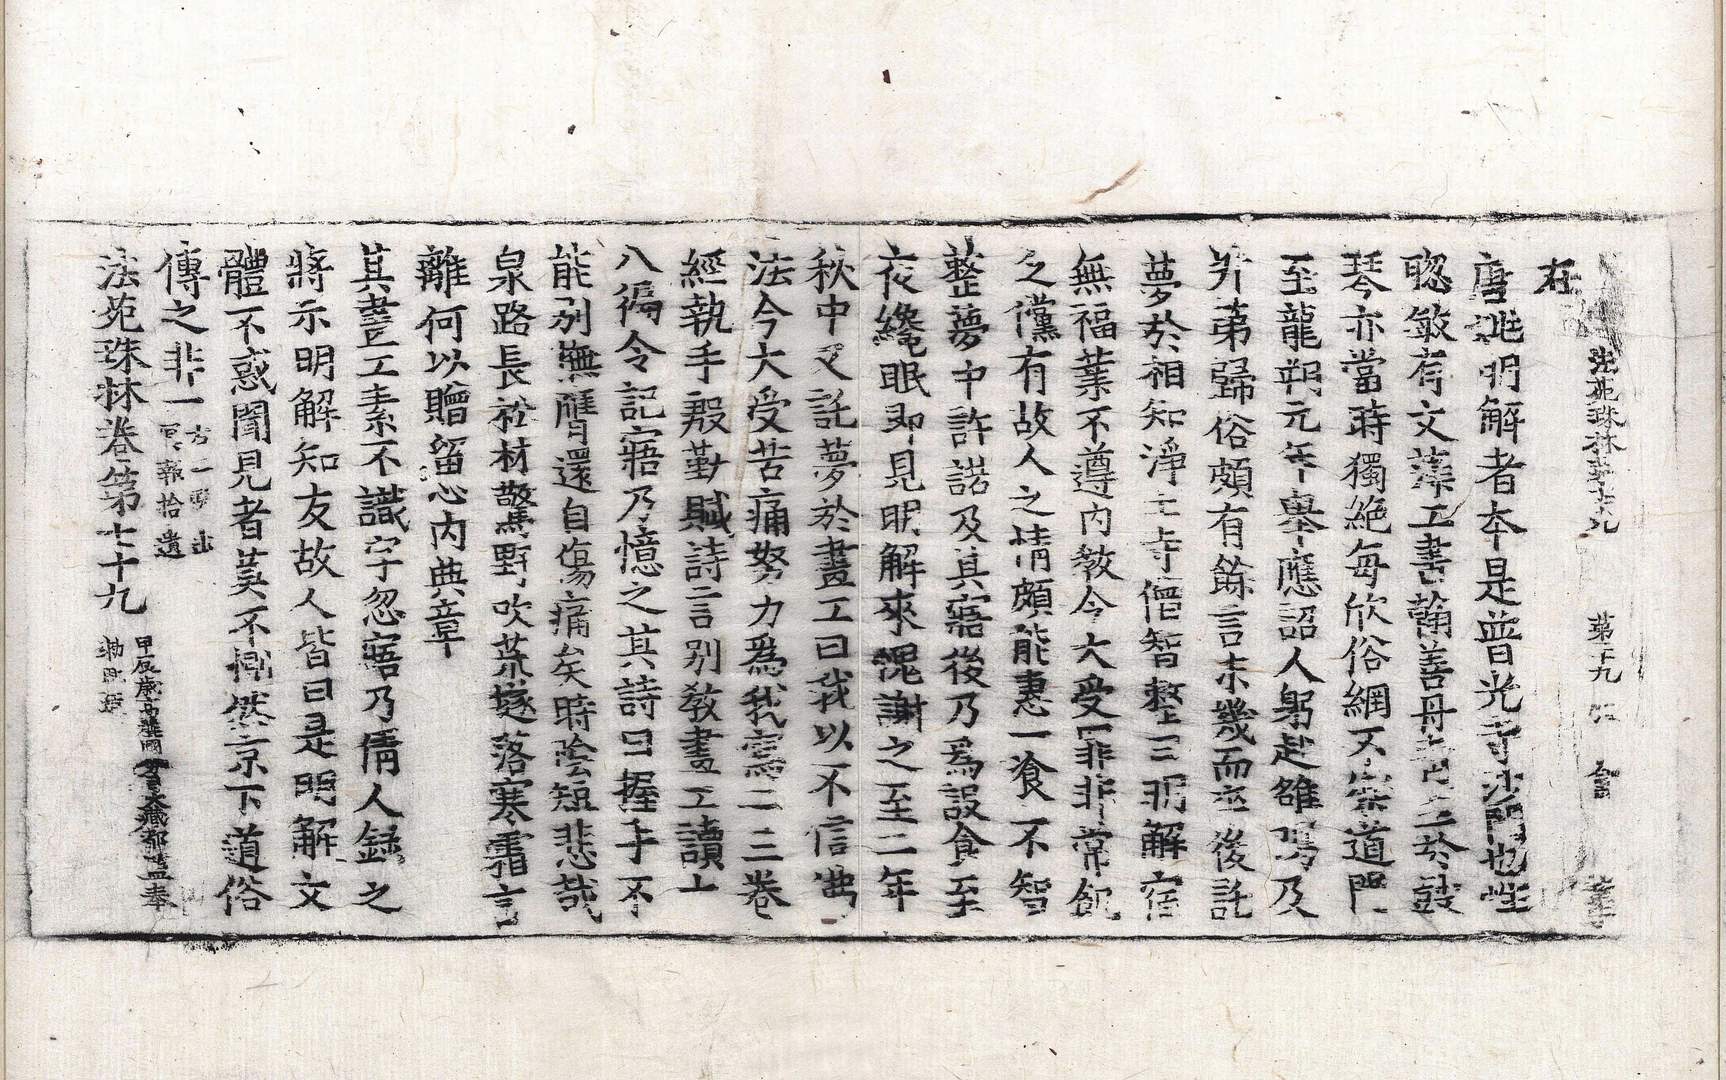 法苑珠林第七十九　第十九　　會
在
唐姚明解者本是普光寺沙門也性
聦敏有文藻工書翰善丹青至於鼓
琴亦當時獨絶每欣俗網不樂道門
至龍朔元年舉應詔人躬赴雒陽及
苐歸俗頗有餘言未幾而卒後託
夢於相知淨土寺僧智整曰明解宿
無福業不遵內教今大受罪非常飢
乏儻有故人之情頗能惠一飡不智
整夢中許諾及其寤後乃爲設食至
夜纔眠即見明解來愧謝之至二年
秋中又託夢於畫工曰我以不信佛
法今大受苦痛努力爲我寫二三卷
經執手殷勤賦詩言別教畫工讀上
八遍令記寤乃憶之其詩曰握手不
能別撫膺還自傷痛矣時陰短悲哉
泉路長松林驚野吹荒隧落寒霜言
離何以贈留心內典章
其畫工素不識字忽寤乃倩人錄之
將示明解知友故人皆曰是明解文
體不惑聞見者莫不惻然京下道俗
傳之非一右一驗出
冥報拾遺
法苑珠林卷第七十九
甲辰歲高麗國分司大藏都監奉
勑雕造